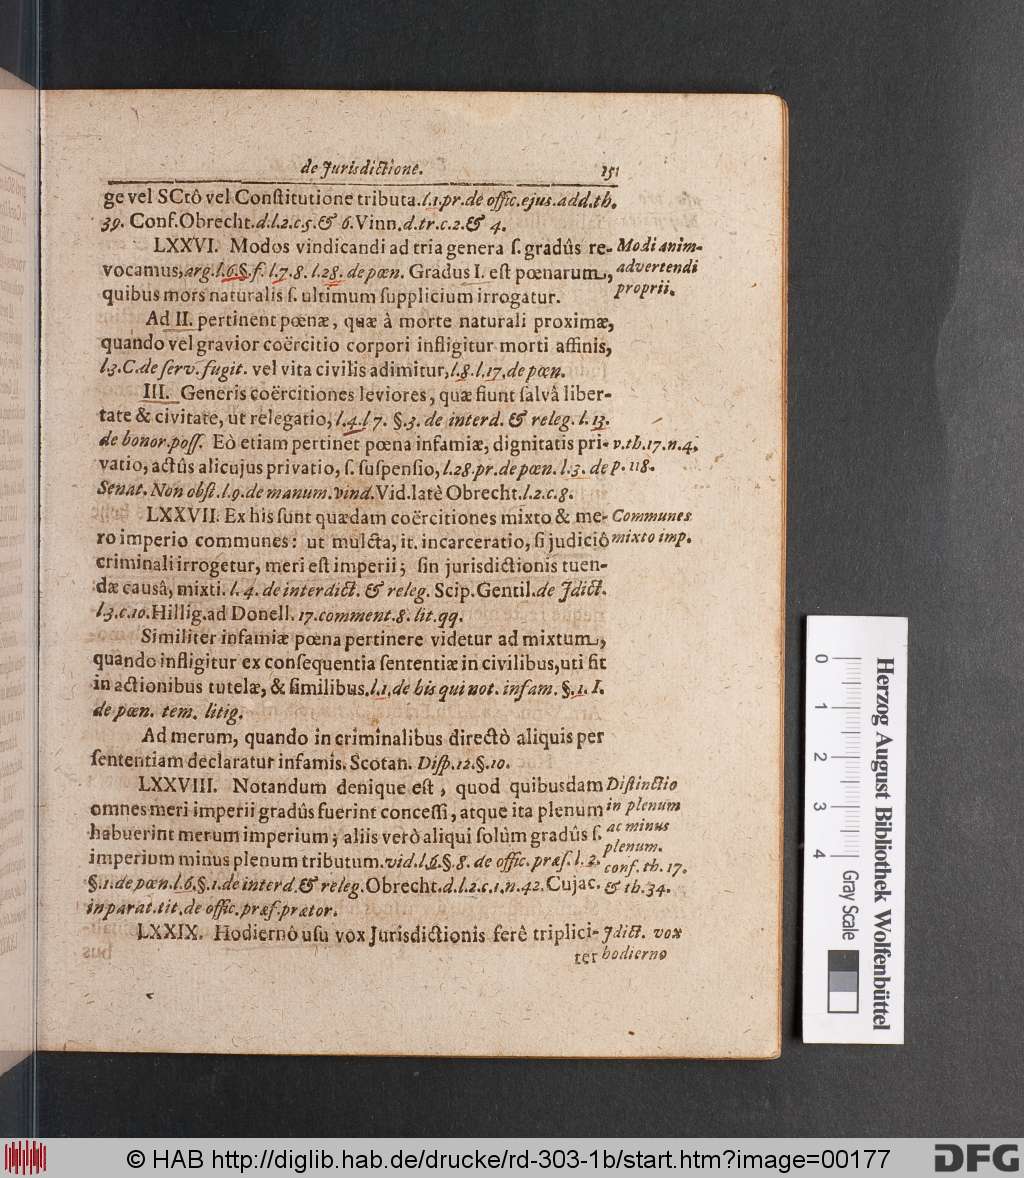 de Jurisdictione. 151
ge vel SCtô vel Constitutione tributa. l.1.pr.de offic.ejus.add.th.
39. Conf.Obrecht.d.l.2.c.5.& 6.Vinn.d.tr.c.2.& 4.
LXXVI. Modos vindicandi ad tria genera s. gradûs re-
vocamus, arg.l.6.§.f. l.7.8. l.28. de pœn. Gradus I. est pœnarum,
quibus mors naturalis s. ultimum supplicium irrogatur.
Modi anim-
advertendi
proprii.
Ad II. pertinent pœnæ, quæ à morte naturali proximæ,
quando vel gravior coërcitio corpori infligitur morti affinis,
l.3.C.de serv.fugit. vel vita civilis adimitur, l.8.l.17.de pœn.
III. Generis coërcitiones leviores, quæ fiunt salvâ liber-
tate & civitate, ut relegatio, l.4.l 7. §.3. de interd. & releg. l. 13.
de bonor.poss. Eò etiam pertinet pœna infamiæ, dignitatis pri-
vatio, actûs alicujus privatio, s. suspensio, l.28.pr.de pœn. l.3. de
Senat. Non obst.l.9.de manum.vind.Vid.latè Obrecht.l.2.c.8.
v.th.17.n.4.
p. 118.
LXXVII. Ex his sunt quædam coërcitiones mixto & me-
ro imperio communes: ut mulcta, it. incarceratio, si judiciô
criminali irrogetur, meri est imperii; sin jurisdictionis tuen-
dæ causâ, mixti. l. 4. de interdict. & releg. Scip.Gentil.de Jdict.
l.3.c.10.Hillig.ad Donell. 17.comment.8. lit.qq.
Communes
mixto imp.
Similiter infamiæ pœna pertinere videtur ad mixtum,
quando infligitur ex consequentia sententiæ in civilibus, uti fit
in actionibus tutelæ, & similibus. l.1.de his qui not. infam. §.1. I.
de pœn. tem. litig.
Ad merum, quando in criminalibus directò aliquis per
sententiam declaratur infamis. Scotan. Disp.12.§.10.
LXXVIII. Notandum denique est, quod quibusdam
omnes meri imperii gradûs fuerint concessi, atque ita plenum
habuerint merum imperium; aliis verò aliqui solùm gradûs s.
imperium minus plenum tributum.vid.l.6.§.8. de offic.præs.l. 2.
§.1.de pœn.l.6.§.1.de interd.& releg.Obrecht.d.l.2.c.1.n.42.Cujac.
in parat.tit.de offic.præf.prætor.
Distinctio
in plenum
ac minus
plenum.
conf. th. 17.
& th.34.
LXXIX. Hodiernô usu vox Jurisdictionis ferê triplici-
ter
Jdict. vox
hodierno
0 1 2 3 4
Gray Scale
Herzog August Bibliothek Wolfenbüttel
© HAB http://diglib.hab.de/drucke/rd-303-1b/start.htm?image=00177
DFG